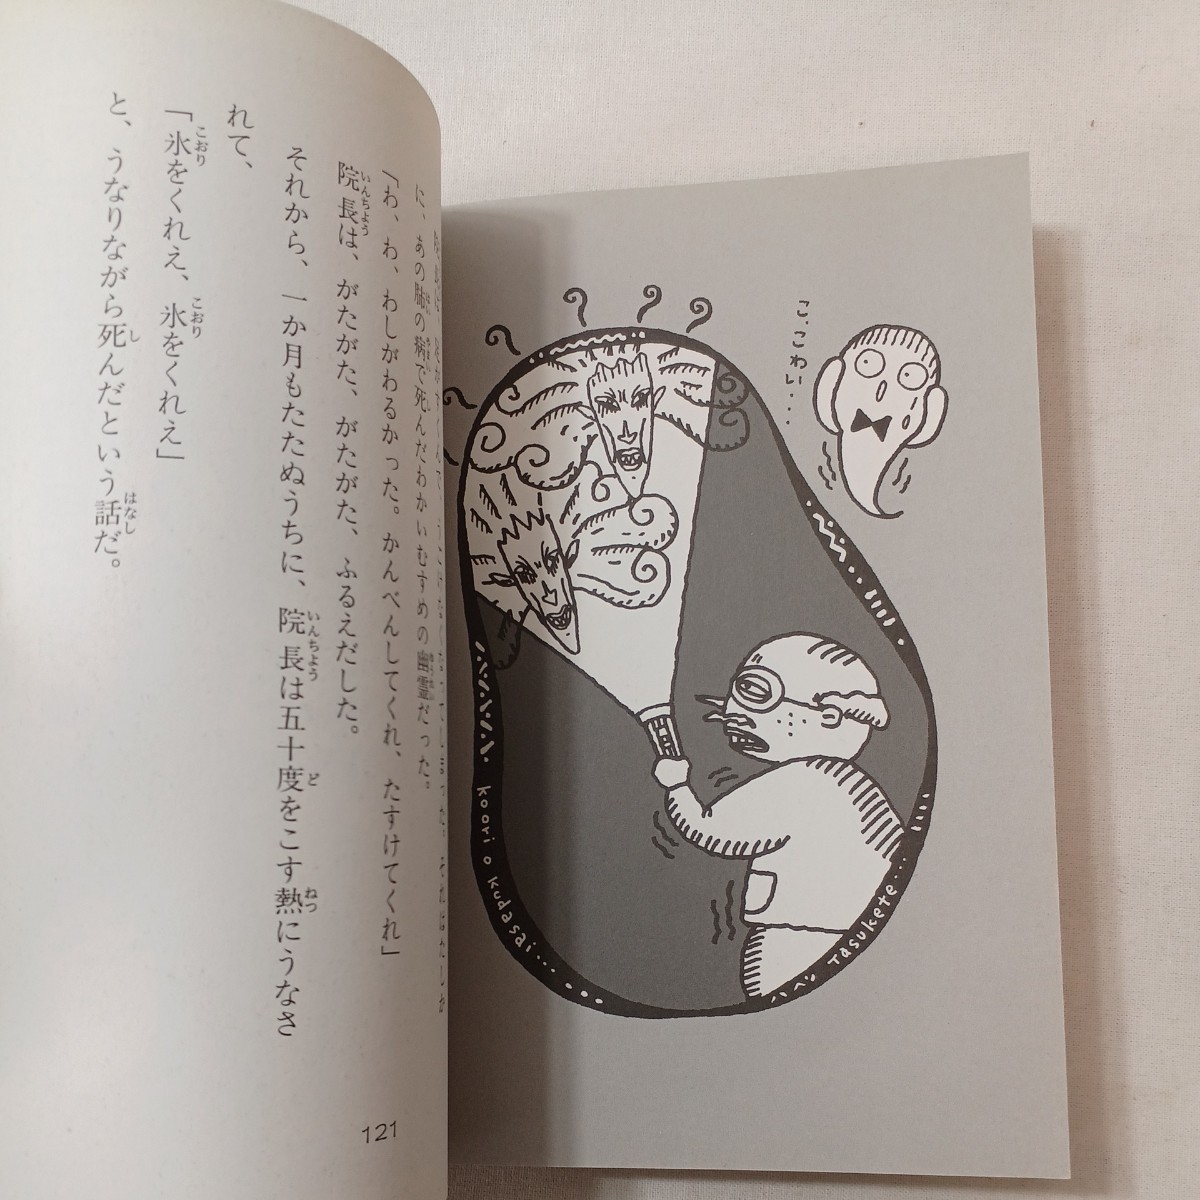 に、あの肺の病で死んだわかいむすめの幽霊だった。
「わ、わ、わしがわるかった。かんべんしてくれ、たすけてくれ」
院長は、がたがた、がたがた、ふるえだした。
それから、一か月もたたぬうちに、院長は五十度をこす熱にうなさ
れて、
「氷をくれえ、氷をくれえ」
と、うなりながら死んだという話だ。
121
こ、こわい...
koori o kudasai....
Tasukete...